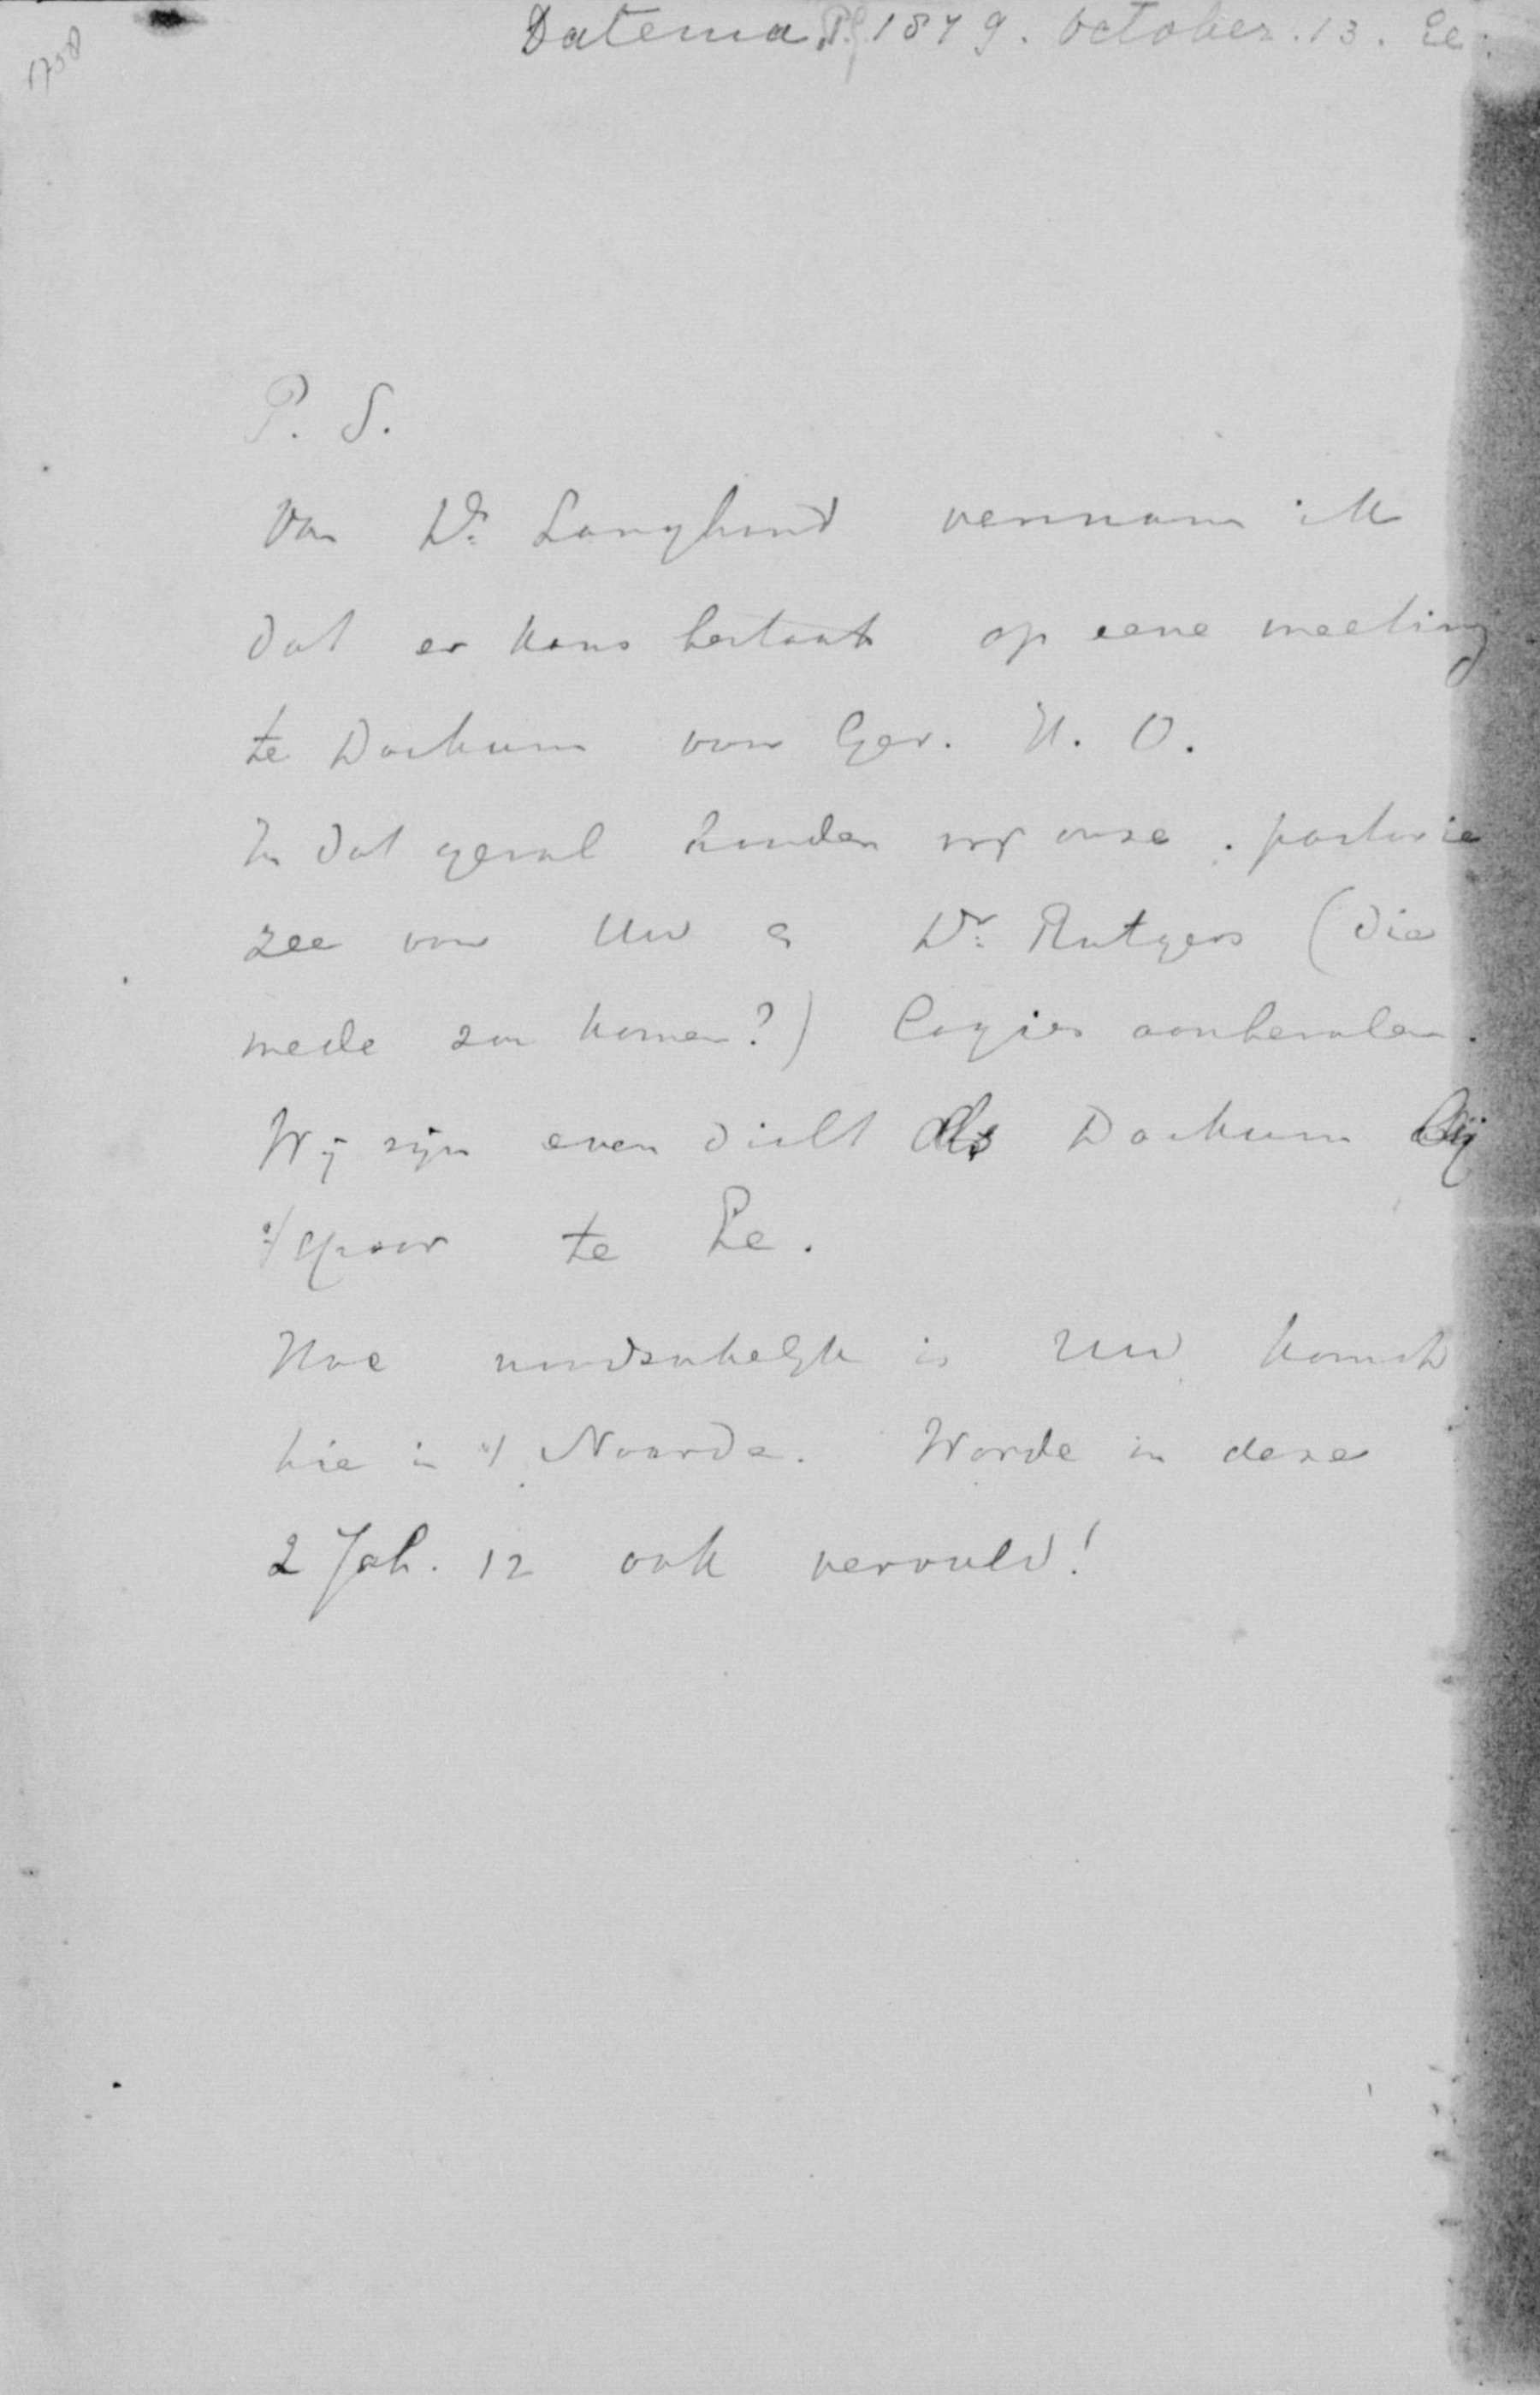 1758
Datema, P.J. 1879. October. 13. Ee.
P. S.
Van Ds. Langhout vernam ik
dat er kans bestaat op eene meeting
te Dockum voor Ger. H. O.
In dat geval houden wij onze pastorie
zee voor Uw & Dr. Rutgers (die
mede zou komen?) Logies aanbevolen.
Wij zijn even dicht als Dockum bij
't spoor te Ee.
Hoe noodzakelijk is Uw komst
hie in 't Noorde. Worde in deze
2 Joh. 12 ook vervuld!